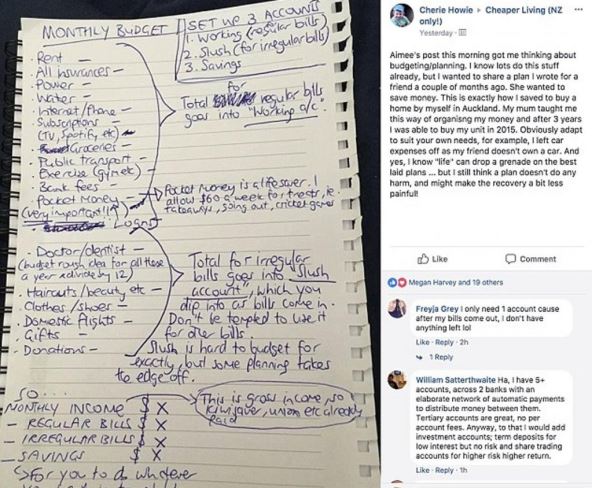 MONTHLY BUDGET
SET UP 3 ACCOUNTS
1. Working (regular bills)
2. Slush (for irregular bills)
3. Savings
. Rent —
. All insurances —
. Power —
. Water —
. Internet/Phone —
. Subscriptions
(TV, Spotify, etc) —
. Groceries —
. Public transport —
. Exercise (gym etc) —
. Bank fees —
. Pocket Money —
(very important!!)
. Loans
Total for regular bills
goes into "Working a/c".
Pocket money is a lifesaver. I
allow $60 a week for treats, ie.
takeaways, going out, cricket games
. Doctor/dentist —
(budget rough idea for all these
a year & divide by 12)
. Haircuts/beauty etc —
. Clothes/shoes —
. Domestic flights —
. Gifts
. Donations —
Total for irregular
bills goes into "Slush
account", which you
dip into as bills come in.
Don't be tempted to use it
for other bills.
Slush is hard to budget for
exactly, but some planning takes
the edge off.
So...
MONTHLY INCOME $ X
- REGULAR BILLS $ X
- IRREGULAR BILLS $ X
- SAVINGS $ X
This is gross income, so
Kiwisaver, union etc already
paid
For you to do whatever
Cherie Howie ▸ Cheaper Living (NZ
only!)
Yesterday ·
Aimee's post this morning got me thinking about
budgeting/planning. I know lots do this stuff
already, but I wanted to share a plan I wrote for a
friend a couple of months ago. She wanted to
save money. This is exactly how I saved to buy a
home by myself in Auckland. My mum taught me
this way of organisng my money and after 3 years
I was able to buy my unit in 2015. Obviously adapt
to suit your own needs, for example, I left car
expenses off as my friend doesn't own a car. And
yes, I know "life" can drop a grenade on the best
laid plans ... but I still think a plan doesn't do any
harm, and might make the recovery a bit less
painful!
Like Comment
Megan Harvey and 19 others
Freyja Grey I only need 1 account cause
after my bills come out, I don't have
anything left lol
Like · Reply · 2h
1 Reply
William Satterthwaite Ha, I have 5+
accounts, across 2 banks with an
elaborate network of automatic payments
to distribute money between them.
Tertiary accounts are great, no per
account fees. Anyway, to that I would add
investment accounts; term deposits for
low interest but no risk and share trading
accounts for higher risk higher return.
Like · Reply · 1h